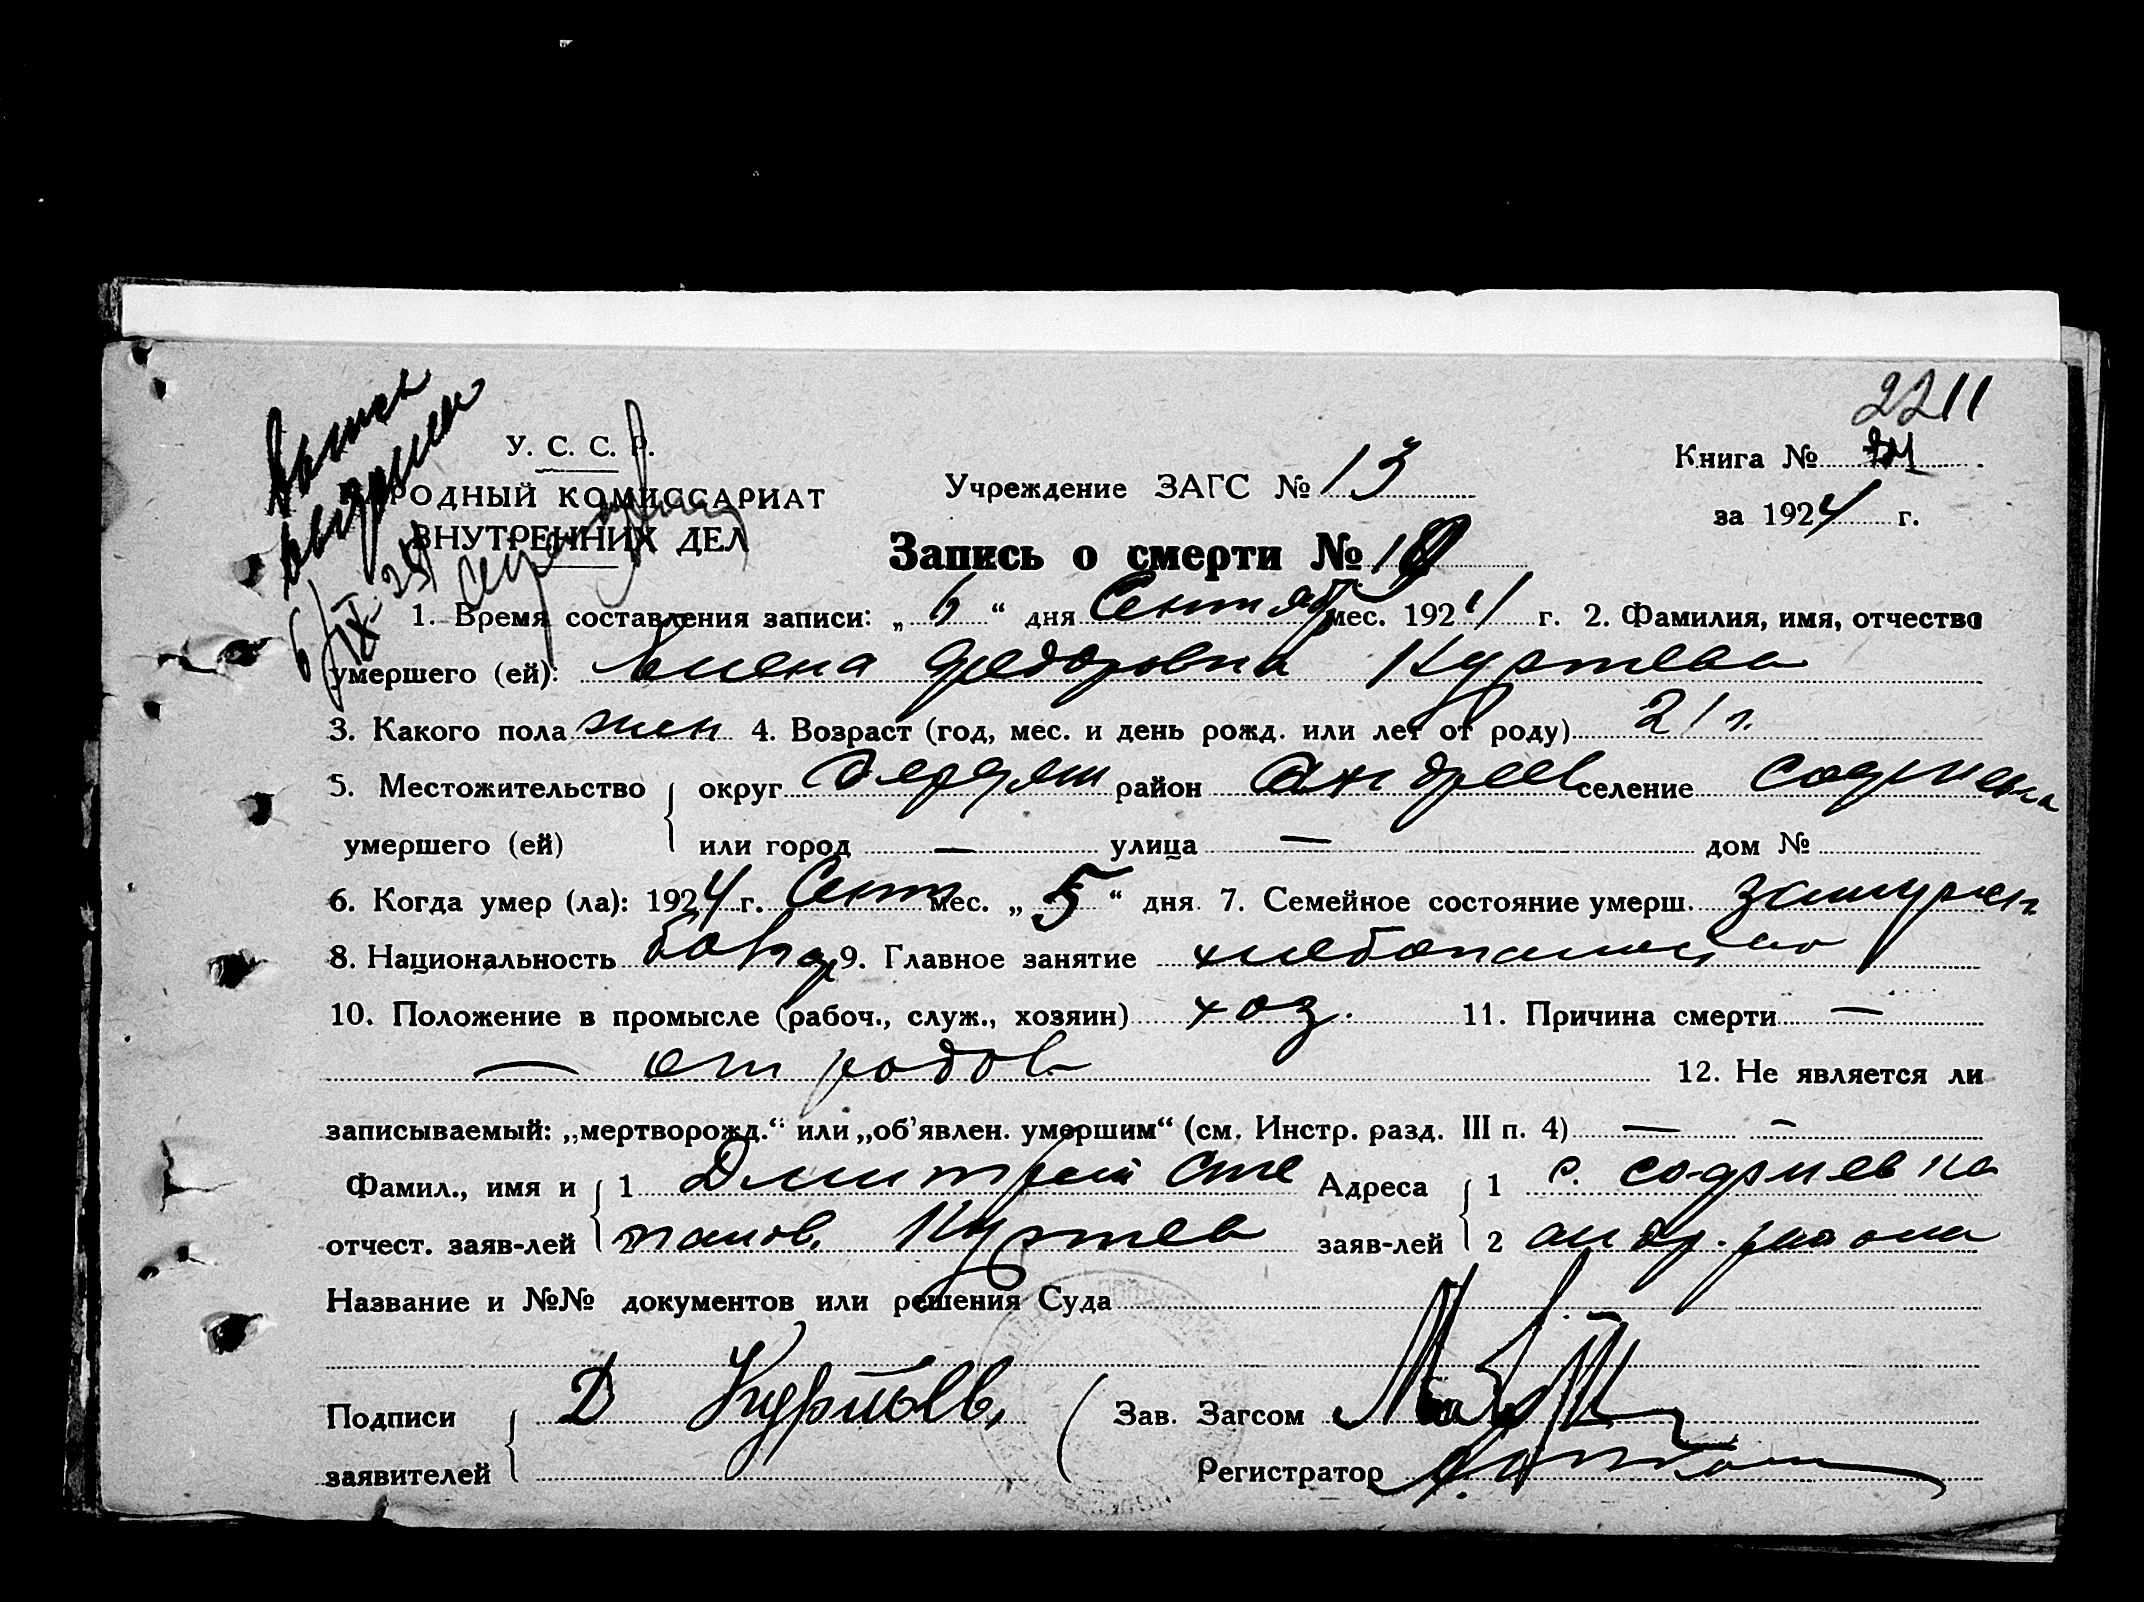 2211
Выпись
выдана
6/IX 24
У. С. С. Р.
РОДНЫЙ КОМИССАРИАТ
ВНУТРЕННИХ ДЕЛ
Учреждение ЗАГС № 13
Книга №
за 1924 г.
Запись о смерти № 18
1. Время составления записи: „ 6 “ дня Сентяб мес. 1924 г. 2. Фамилия, имя, отчество
умершего (ей): Елена Федоровна Куртева
3. Какого пола жен 4. Возраст (год, мес. и день рожд. или лет от роду) 21 г.
5. Местожительство округ Бердян район Андреев селение Софиевка
умершего (ей) или город — улица — дом №
6. Когда умер (ла): 1924 г. Сент мес. „ 5 “ дня 7. Семейное состояние умерш. замужен
8. Национальность болгар 9. Главное занятие хлебопашество
10. Положение в промысле (рабоч., служ., хозяин) хоз. 11. Причина смерти —
— от родов
12. Не является ли
записываемый: „мертворожд.“ или „об’явлен. умершим“ (см. Инстр. разд. III п. 4) — —
Фамил., имя и 1 Дмитрий Сте Адреса 1 с. Софиевка
отчест. заяв-лей 2 панов. Куртев заяв-лей 2 андр. района
Название и №№ документов или решения Суда
Подписи Д Куртевъ Зав. Загсом
заявителей Регистратор